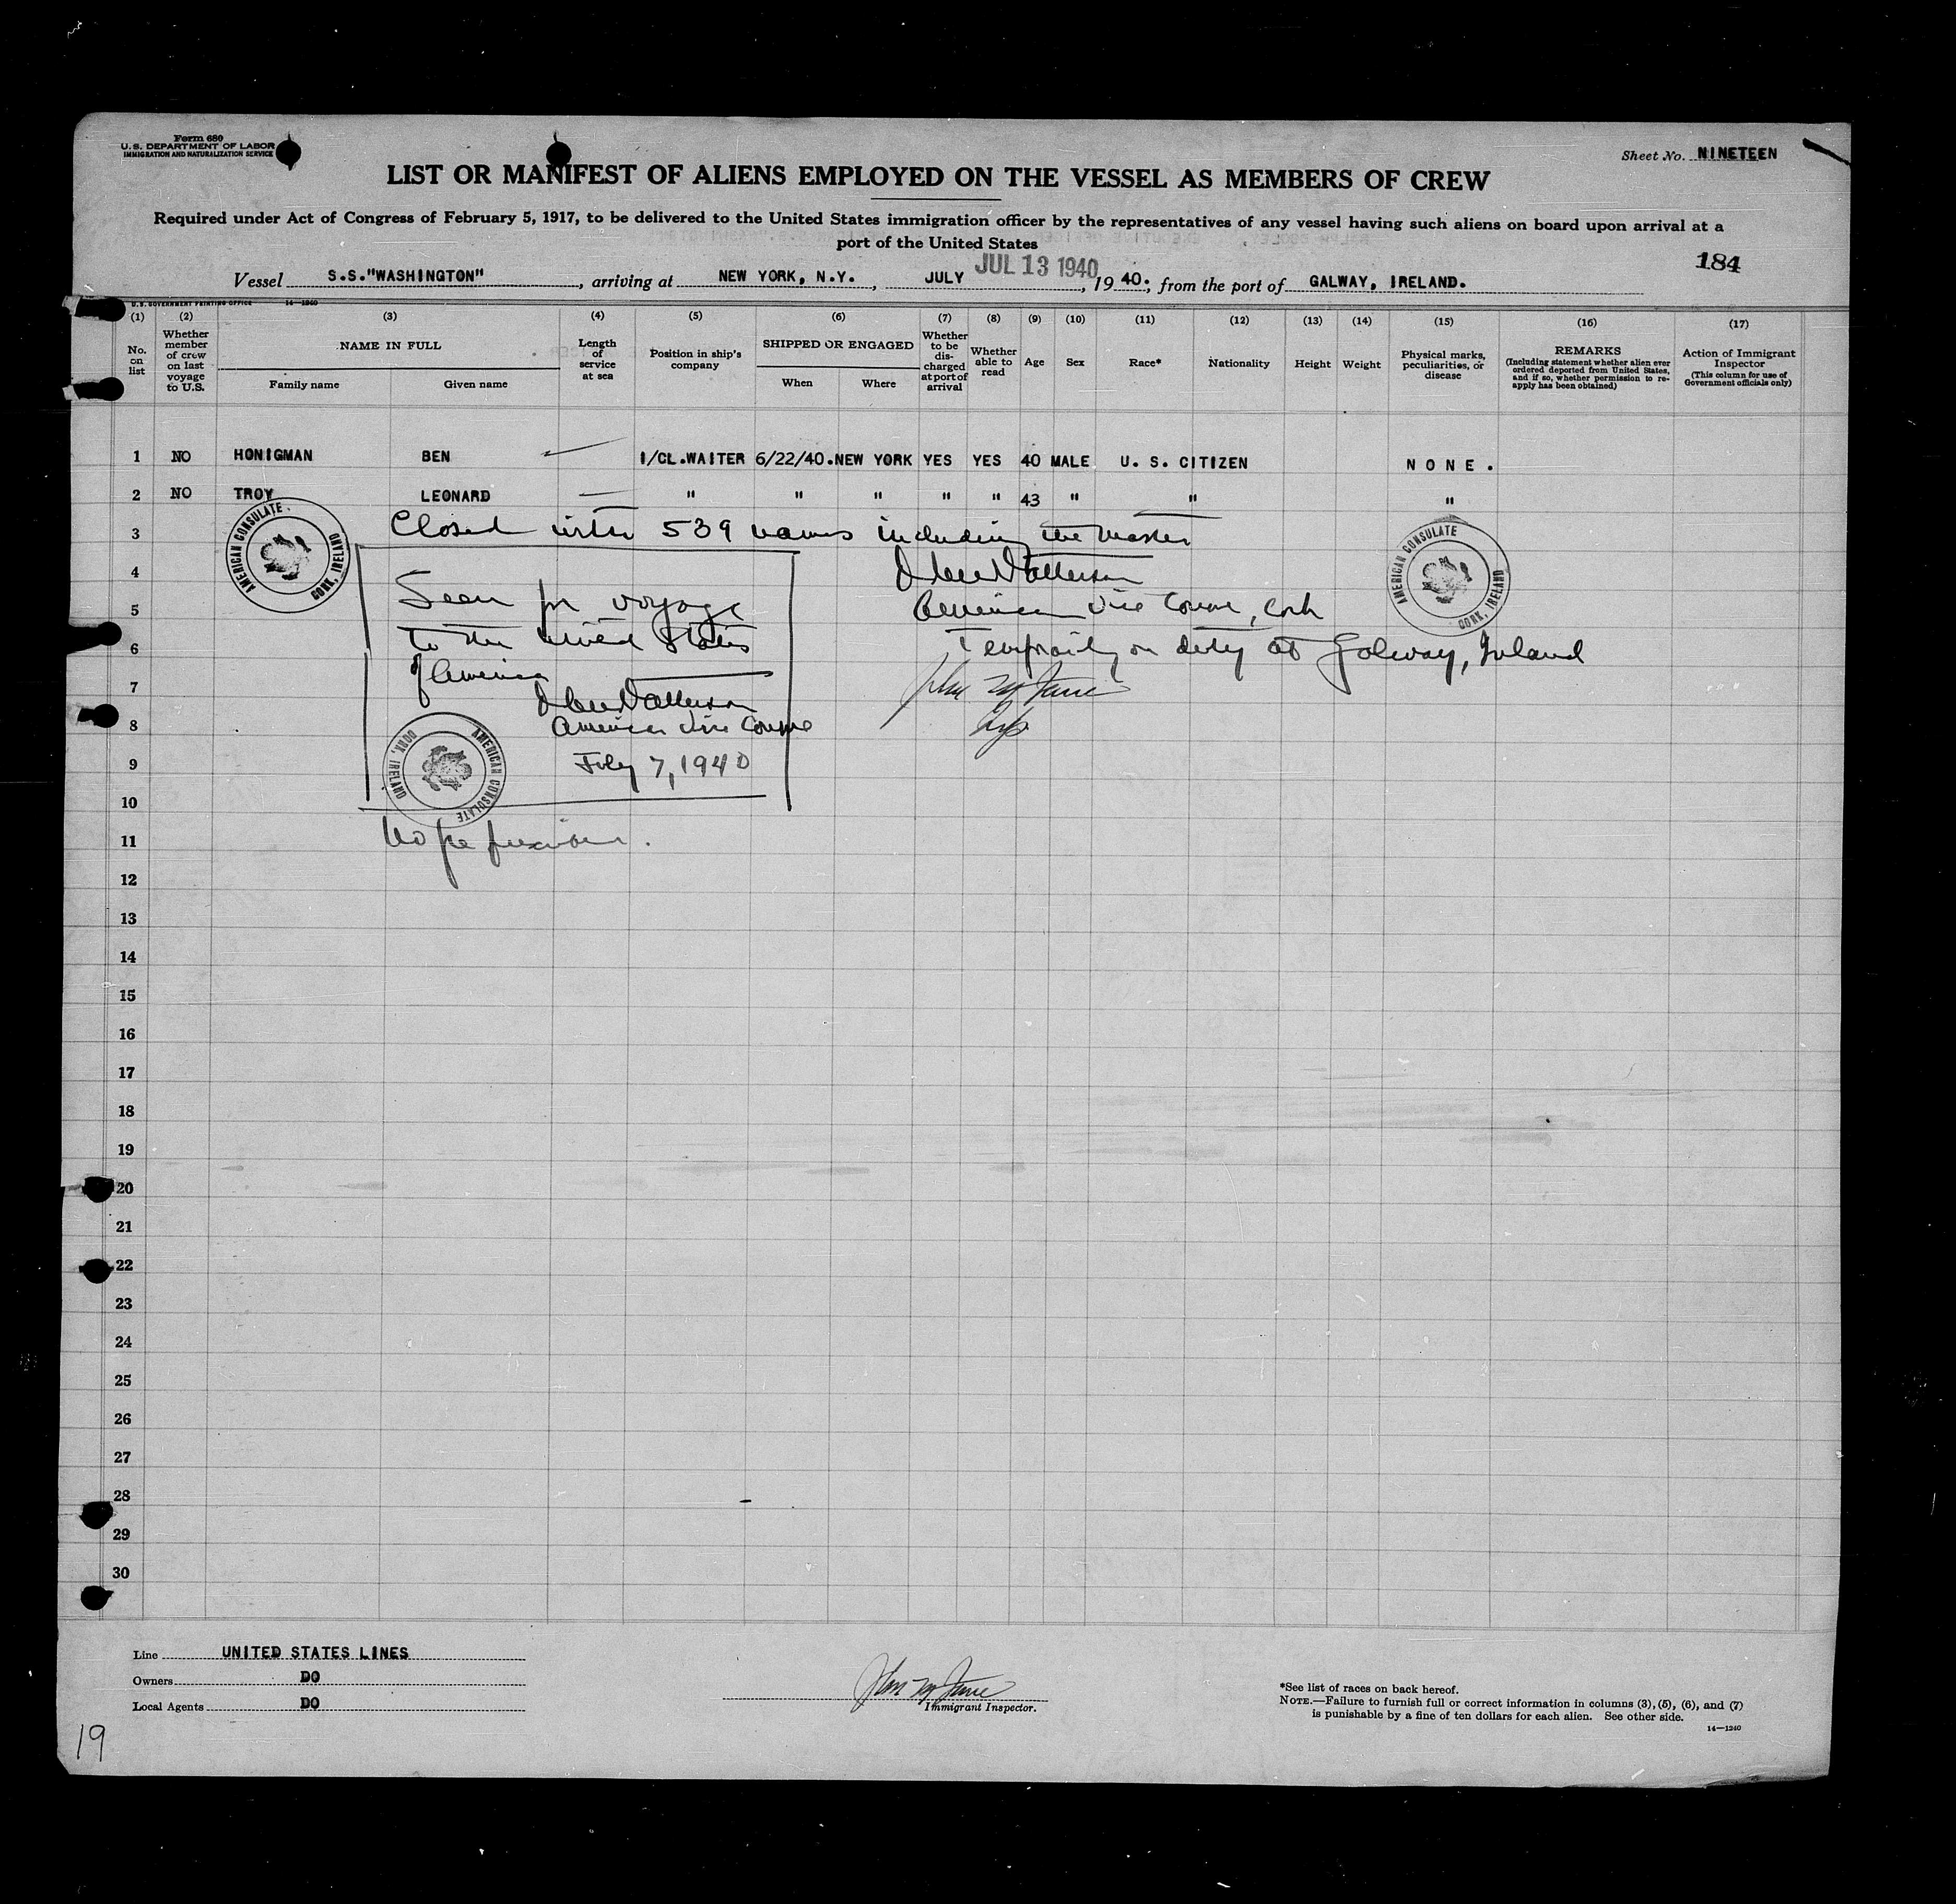 Form 680
U. S. DEPARTMENT OF LABOR
IMMIGRATION AND NATURALIZATION SERVICE
Sheet No. NINETEEN
LIST OR MANIFEST OF ALIENS EMPLOYED ON THE VESSEL AS MEMBERS OF CREW
Required under Act of Congress of February 5, 1917, to be delivered to the United States immigration officer by the representatives of any vessel having such aliens on board upon arrival at a
port of the United States
184
Vessel S.S."WASHINGTON", arriving at NEW YORK, N.Y., JULY JUL 13 1940, 19 40; from the port of GALWAY, IRELAND.
U. S. GOVERNMENT PRINTING OFFICE 14—1240
(1) (2) (3) (4) (5) (6) (7) (8) (9) (10) (11) (12) (13) (14) (15) (16) (17)
No. on list
Whether member of crew on last voyage to U.S.
NAME IN FULL
Family name
Given name
Length of service at sea
Position in ship's company
SHIPPED OR ENGAGED
When
Where
Whether to be discharged at port of arrival
Whether able to read
Age
Sex
Race*
Nationality
Height
Weight
Physical marks, peculiarities, or disease
REMARKS
(Including statement whether alien ever ordered deported from United States, and if so, whether permission to re-apply has been obtained)
Action of Immigrant Inspector
(This column for use of Government officials only)
1 NO HONIGMAN BEN — 1/CL.WAITER 6/22/40. NEW YORK YES YES 40 MALE U. S. CITIZEN NONE.
2 NO TROY LEONARD — " " " " " 43 " " "
3 Closed with 539 names including the Master
4 Patterson
5 American Vice Consul, Cork
6 Temporarily on duty at Galway, Ireland
Seen for voyage
to the United States
of America
Patterson
American Vice Consul
July 7, 1940
AMERICAN CONSULATE
CORK, IRELAND
AMERICAN CONSULATE
CORK, IRELAND
AMERICAN CONSULATE
CORK, IRELAND
7
8
9
10
11 No fee
12
13
14
15
16
17
18
19
20
21
22
23
24
25
26
27
28
29
30
Line UNITED STATES LINES
Owners DO
Local Agents DO
Immigrant Inspector.
*See list of races on back hereof.
NOTE.—Failure to furnish full or correct information in columns (3), (5), (6), and (7)
is punishable by a fine of ten dollars for each alien. See other side.
14—1240
19